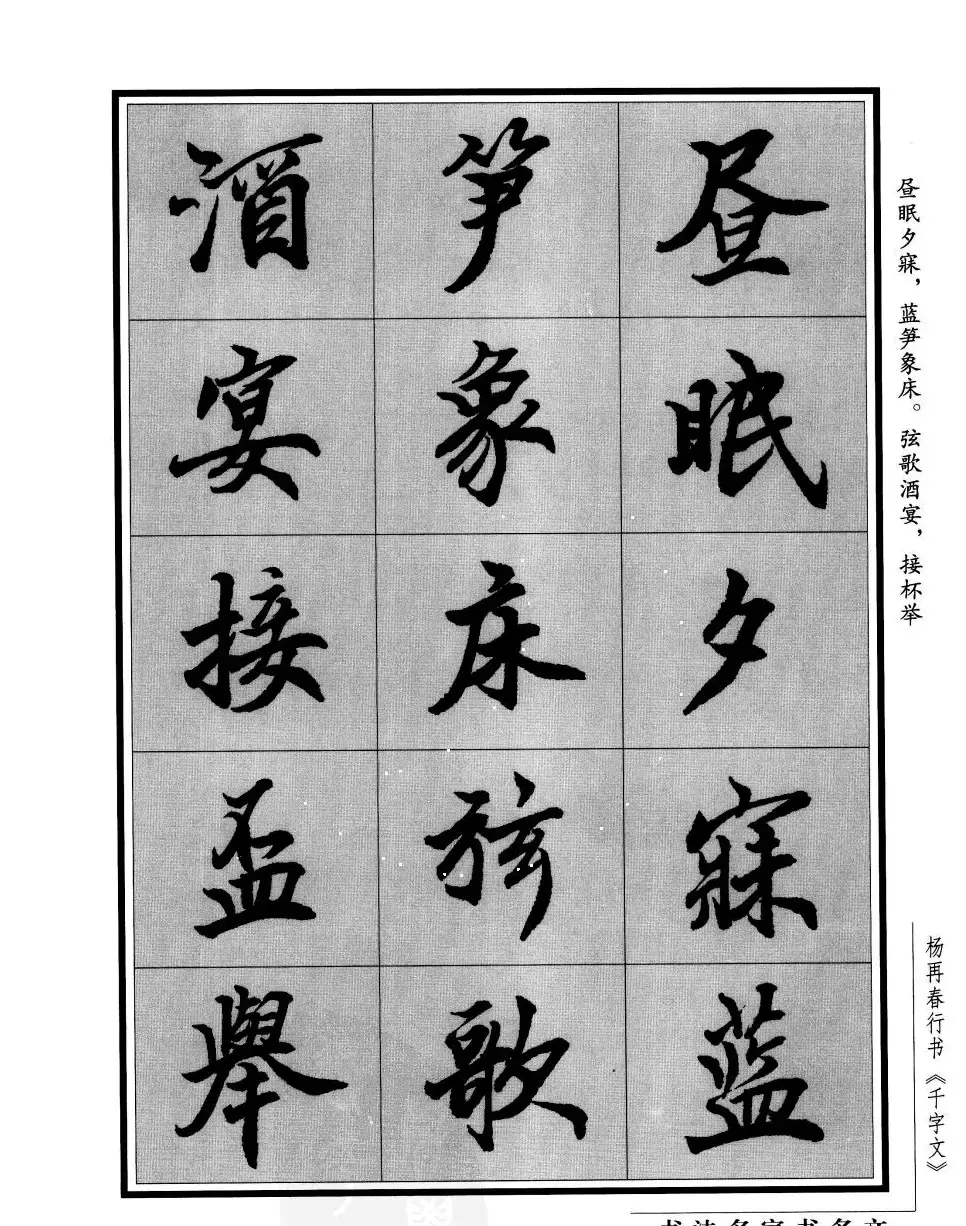 昼眠夕寐，蓝笋象床。弦歌酒宴，接杯举
昼眠夕寐蓝
笋象床弦歌
酒宴接盃舉
杨再春行书《千字文》